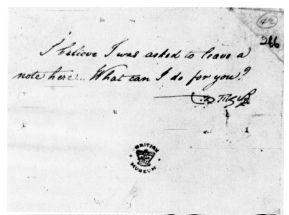 (42)
266
I believe I was asked to leave a
note here... What can I do for you?
BRITISH
MUSEUM